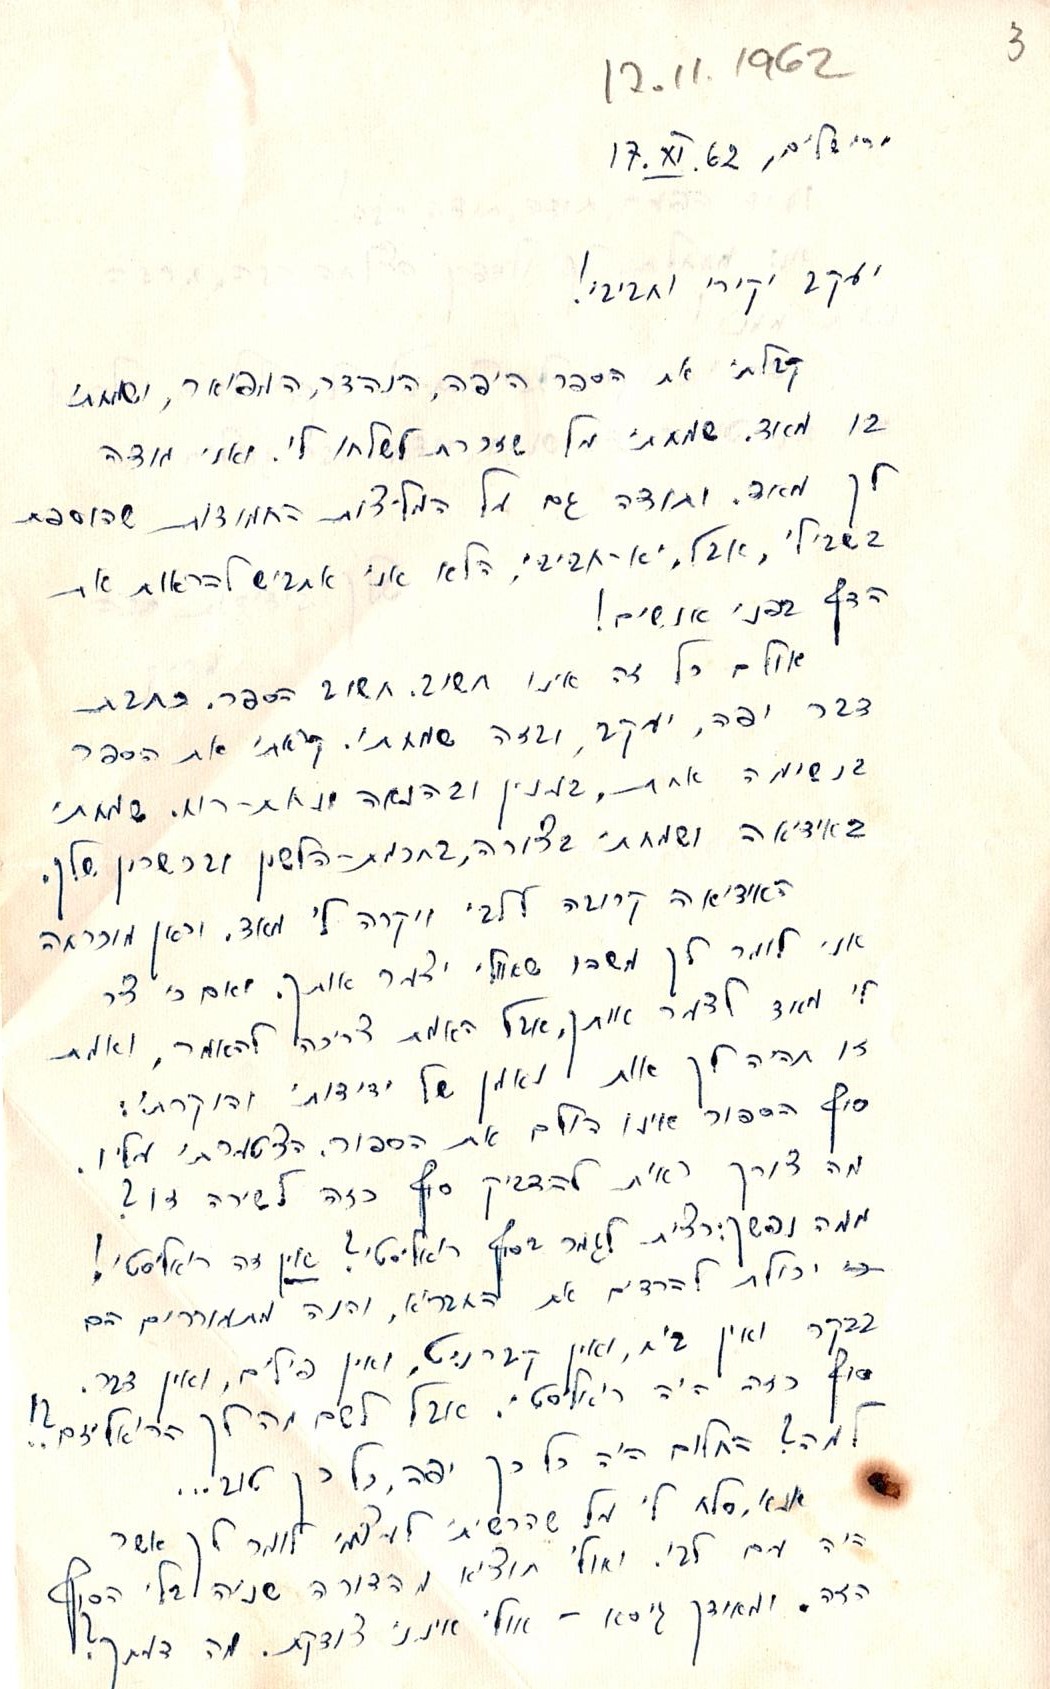 3
17.11.1962
ירושלים, 17.XI.62
יעקב יקירי וחביבי!
קבלתי את הספר היפה, הנהדר, המפואר, ושמחתי
בו מאוד. שמחתי על שזכרת לשלחו לי. ואני מודה
לך מאוד. ותודה גם על המליצות החמודות שהוספת
בשבילי, אבל, יא-חביבי, הלא אני אתבייש להראות את
הדף בפני אנשים!
אולם כל זה אינו חשוב. חשוב הספר. כתבת
דבר יפה, יעקב, ובזה שמחתי. קראתי את הספר
בנשימה אחת, בענין ובהנאה ונחת-רוח. שמחתי
באידיאה ושמחתי בצורה, בחכמת-הלשון ובכשרון שלך.
האידיאה קרובה ללבי ויקרה לי מאד. וכאן מוכרחה
אני לומר לך משהו שאולי יצער אותך. ואם כי צר
לי מאד לצער אותך, אבל האמת צריכה להאמר, ואמת
זו תהיה לך אות נאמן של ידידותי והוקרתי:
סוף הספור אינו הולם את הספור. הצטערתי עליו.
מה צורך ראית להדביק סוף כזה לשירה זו?
ממה נפשך: רצית לגמר בסוף ריאליסטי? אין זה ריאליסטי!
כי יכולת להרדים את החבריא, והנה מתעוררים הם
בבקר ואין בית, ואין קברניט, ואין פילים, ואין דבר.
סוף כזה היה ריאליסטי. אבל לשם מה לך הריאליזם?!
למה? החלום היה כל כך יפה, כל כך טוב...
אנא, סלח לי על שהרשיתי לעצמי לומר לך אשר
היה עם לבי. ואולי תוציא מהדורה שניה בלי הסוף
הזה. ומאידך גיסא – אולי אינני צודקת. מה דעתך?